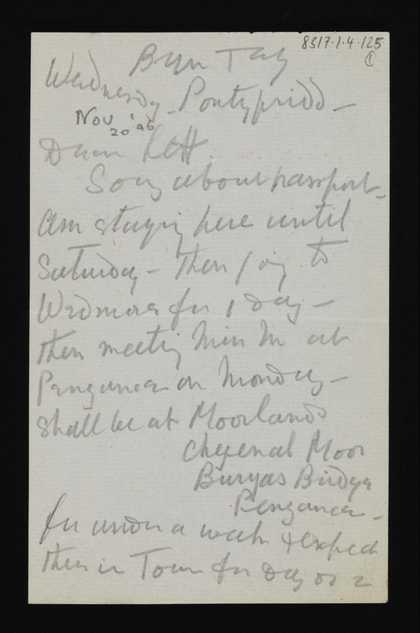 8317.1.4.125
1
Bryn Tag
Wednesday - Pontypridd -
Nov
20 '46
Dear
Sorry about passport -
Am staying here until
Saturday - Then I go to
Wedmore for 1 day -
then meeting Miss M at
Penzance on Monday -
shall be at Moorlands
Moor
Buryas Bridge
Penzance -
for under a week & expect
then in Town for day or 2